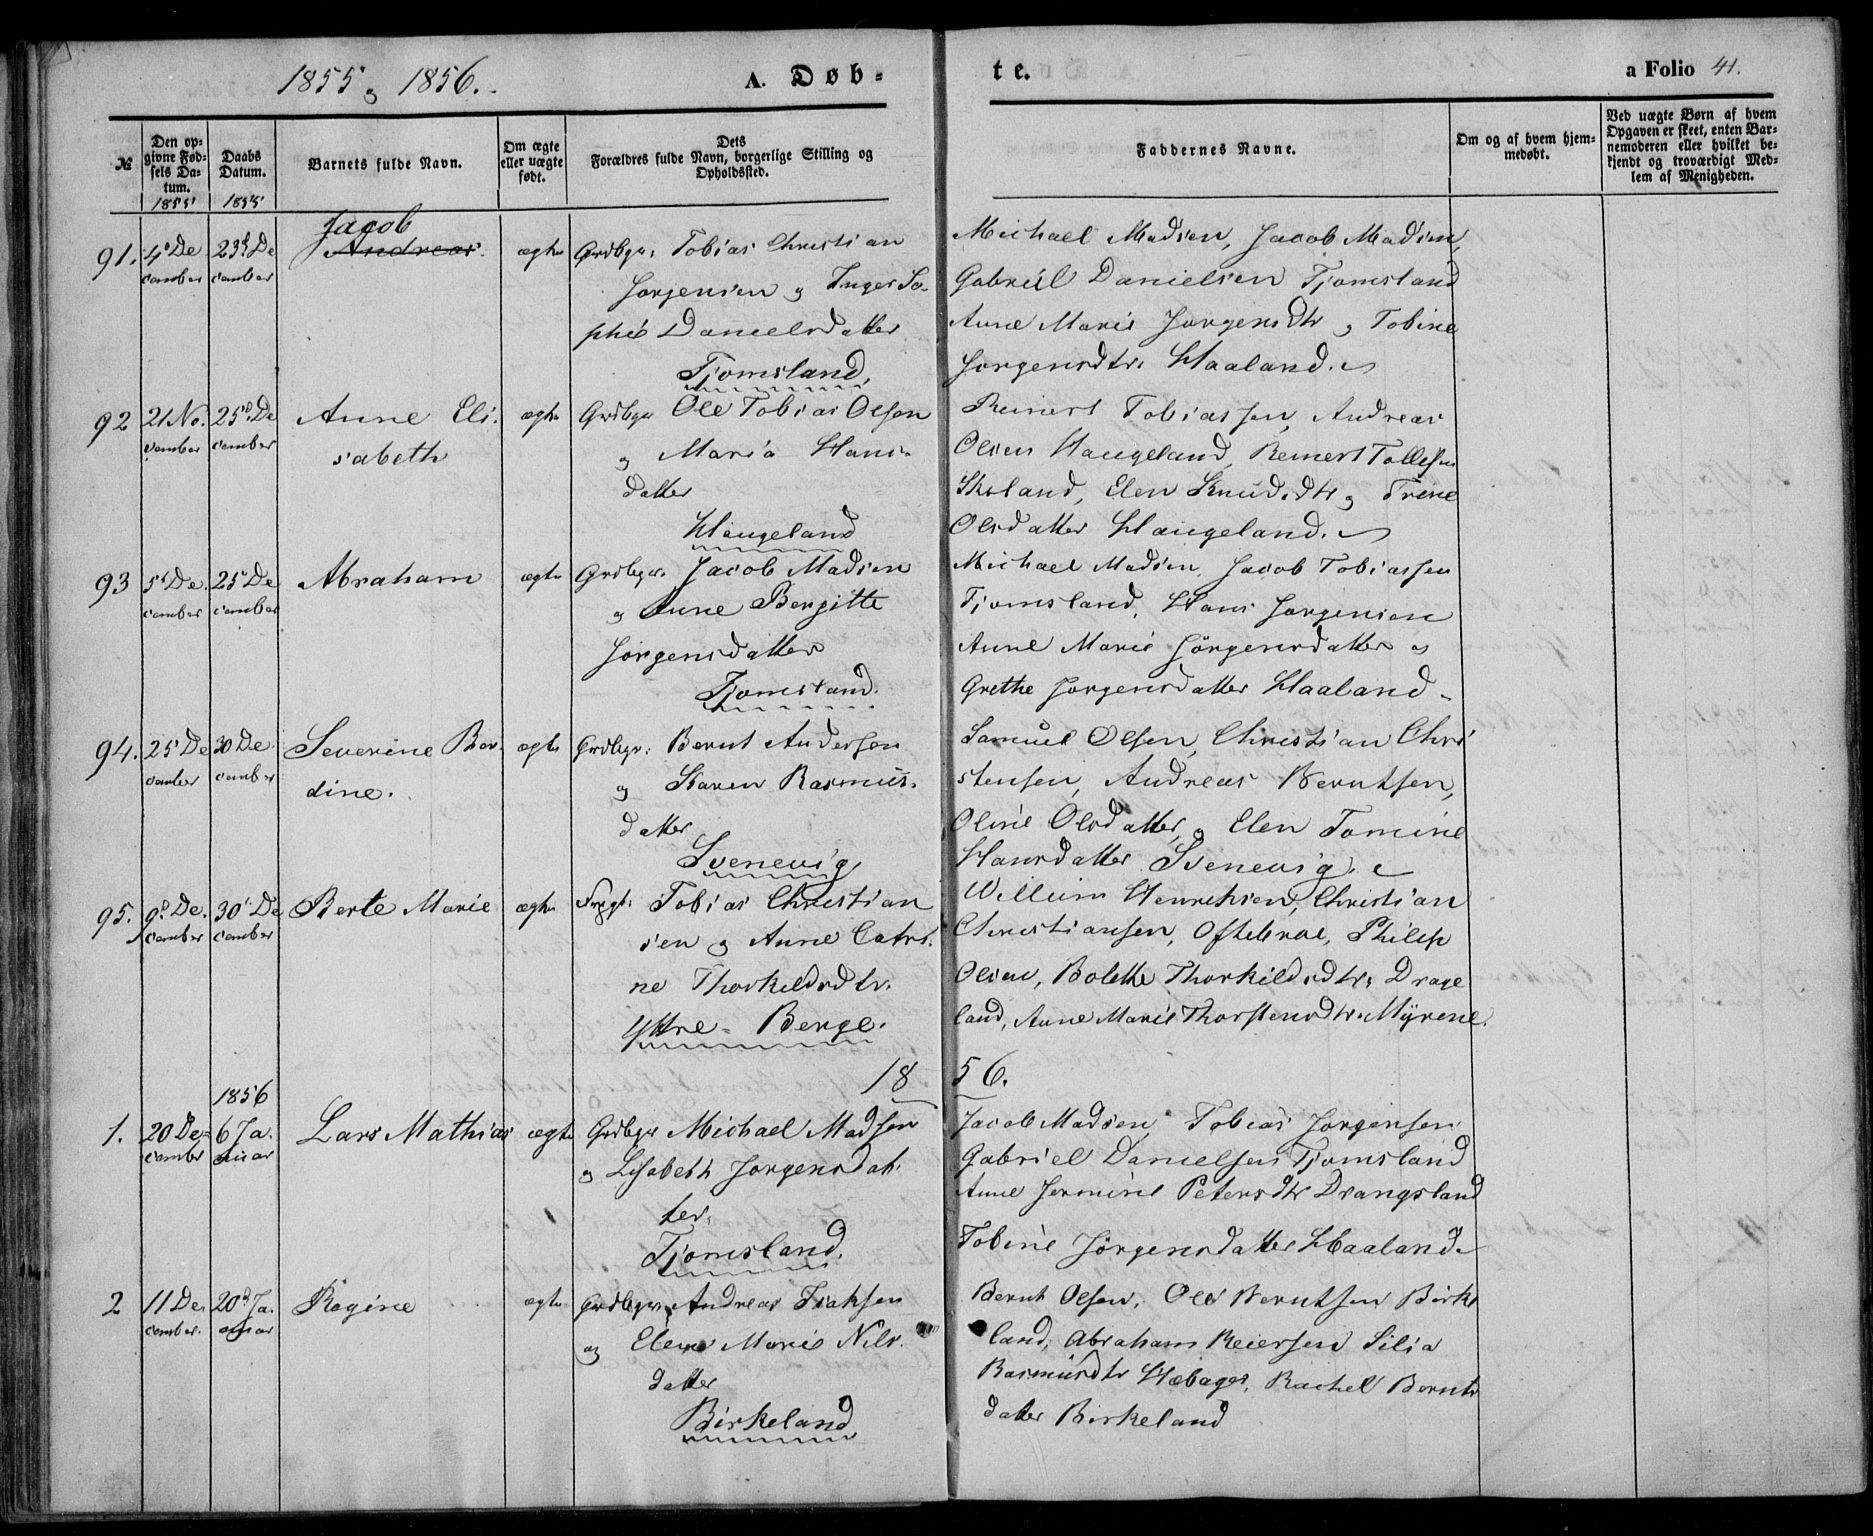 1855 og 1856.
A. Døb-
te.
a Folio 41.
№
Den op-
givne Fød-
sels Da-
tum.
1855
Daabs
Datum.
1855
Barnets fulde Navn.
Om ægte
eller uægte
født.
Dets
Forældres fulde Navn, borgerlige Stilling og
Opholdssted.
Faddernes Navne.
Om og af hvem hjem-
medøbt.
Ved uægte Børn af hvem
Opgaven er skeet, enten Bar-
nemoderen eller hvilket be-
kjendt og troværdigt Med-
lem af Menigheden.
91.
4de De
cember
23d De
cember
Jacob
Andreas.
ægte
Grdbgr. Tobias Christian
Jorgensen og Inger So-
phie Danielsdatter
Tjomsland,
Michael Madsen, Jacob Madsen,
Gabriel Danielsen Tjomsland
Anne Marie Jorgensdtr og Tobine
Jorgensdtr. Haaland.
92
21 No.
vember
25d De
cember
Anne Eli.
sabeth
ægte
Grdbgr Ole Tobias Olsen
og Maria Hans-
datter
Haugeland
Reinert Tobiassen, Andreas
Olsen Haugeland, Reinert Tollefsen
Skoland, Elen Knudsdtr og Trine
Olsdatter Haugeland.
93
5t De.
cember
25 De
cember
Abraham
ægte
Grdbgr. Jacob Madsen
og Anne Bergitte
Jørgensdatter
Tjomsland.
Michael Madsen, Jacob Tobiassen
Tjomsland, Hans Jorgensen
Anne Marie Jörgensdatter og
Grethe Jorgensdatter Haaland.
94.
25 De
cember
30 De.
cember
Severine Ber-
dine.
ægte
Grdbgr: Bernt Andersen
og Karen Rasmus-
datter
Svenevig
Samuel Olsen, Christian Chri
stensen, Andreas Berntsen,
Oline Olsdatter, og Elen Tomine
Hansdatter Svenevig.
95.
9d De.
cember
30t De
cember
Berte Marie
ægte
Tobias Christian
sen og Anne Catri.
ne Thorkildsdtr.
Yttre- Berge.
Willum Henrichsen, Christian
Christiansen, Oftebroe, Philip
Olsen, Bolette Thorkildsdtr. Drage
land, Anne Marie Thorstensdtr. Myrene.
1856.
1856
1.
20 De-
cember
6 Ja.
nuar
Lars Mathias
ægte
Grdbgr Michael Madsen
og Lisabeth Jorgensdat-
ter.
Tjomsland.
Jacob Madsen, Tobias Jorgensen
Gabriel Danielsen Tjomsland
Anne Jermine Petersdtr Drangsland
Tobine Jörgensdatter Haaland.
2
11 De.
cember.
20d Ja.
nuar
Regine
ægte
Grdbgr. Andreas Isaksen
og Elen Marie Nils.
datter
Birkeland
Bernt Olsen, Ole Berntsen Birke
land, Abraham Reiersen Silia
Rasmusdtr Hæbager, Rachel Bernts
datter Birkeland